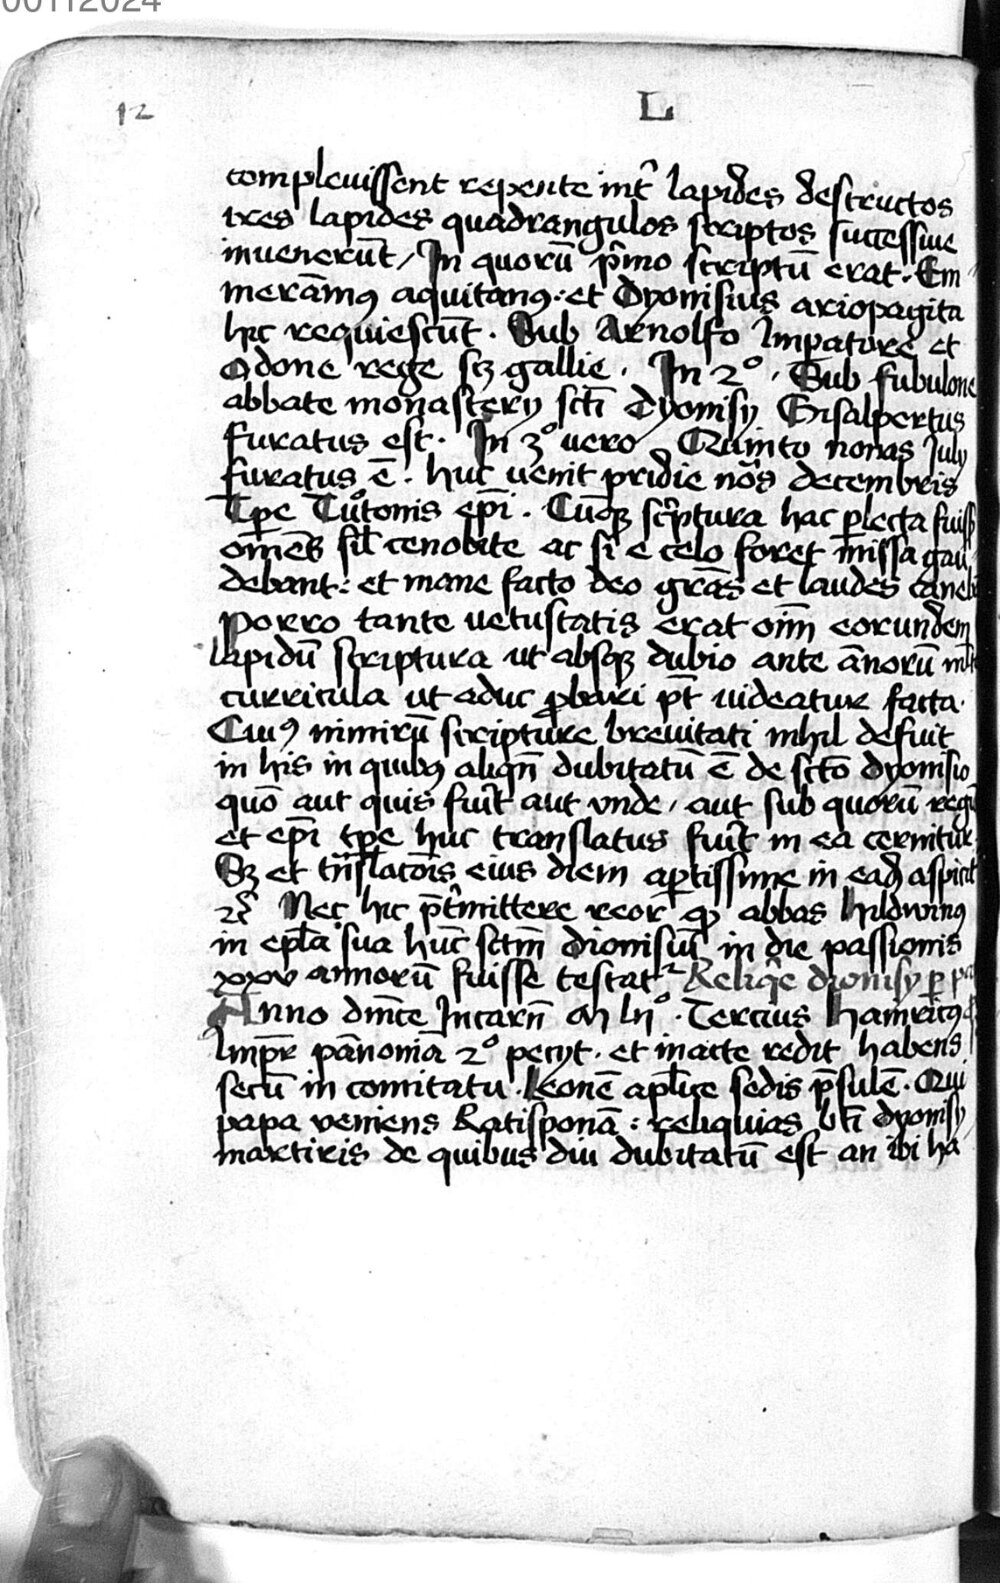 00112024
12
L
complevissent repente int̉ lapides destructos
tres lapides quadrangulos scriptos successive
invenerūt / In quorū p̉mo scriptū erat · Em
merāmꝰ aquitanꝰ : et Dyonisius ariopagita
hic requiescūt · Sub Arnolfo Imperatore et
Odone rege scꝫ gallie · In 2º · Sub fubulone
abbate monastery scti Dyonisy Gisalpertus
furatus est · In 3º vero Quinto nonas July
furatus ē · huc venit pridie nōs decembris
Tp̄e Tutonis ep̄i · Cūqꝫ sc̉ptura hac ꝑlecta fuiss
om̄es sil̄ cenobite ac si e celo foret missa gau
debant : et mane facto deo grās et laudes caneb
porro tante vetustatis erat oīm eorundem
lapidū scriptura ut absqꝫ dubio ante ānorū
curricula ut aduc ꝓbari pt̄ videatur facta ·
Cuiꝰ nimirū scripture brevitati nihil defuit
in his in quibꝰ aliqn̄ dubitatū ē de sctō dyonisio
quō aut quis fuit̉ aut vnde / aut sub quorū regū
et ep̄i tp̄e huc translatus fuit̉ in ea cernitur
Sꝫ et trīslatōis eius diem aꝑtissime in eadē aspicit̉
2ē Nec hic p̄t̉mittere reor qꝫ abbas hildwinꝰ
in ep̄la sua hūc sctm̄ dionisiū in die passionis
xxxv annorū fuisse testat² Reliq̄e dionisy ꝑ
Anno dn̄ice Incarn̄ M lijº · Tercius hainricꝰ
Imp̄r pānoniā 2º petyt · et inacte redit habens
secū in comitatu · Leonē apl̄ice sedis p̄sulē · Qui
papa veniens Ratisponā : reliquias bt̄i dyonisy
martiris de quibus diu dubitatū est an ibi ha